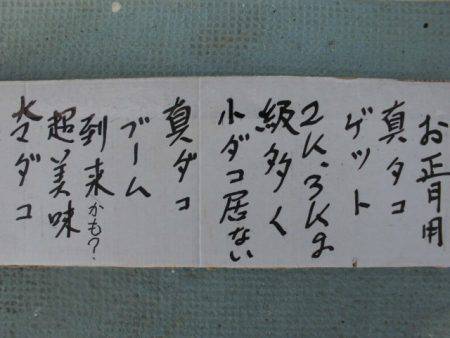 お正月用
真タコ
ゲット
2K.3Kg
級多く
小ダコ居ない
真ダコ
ブーム
到来かも?
超美味
マダコ